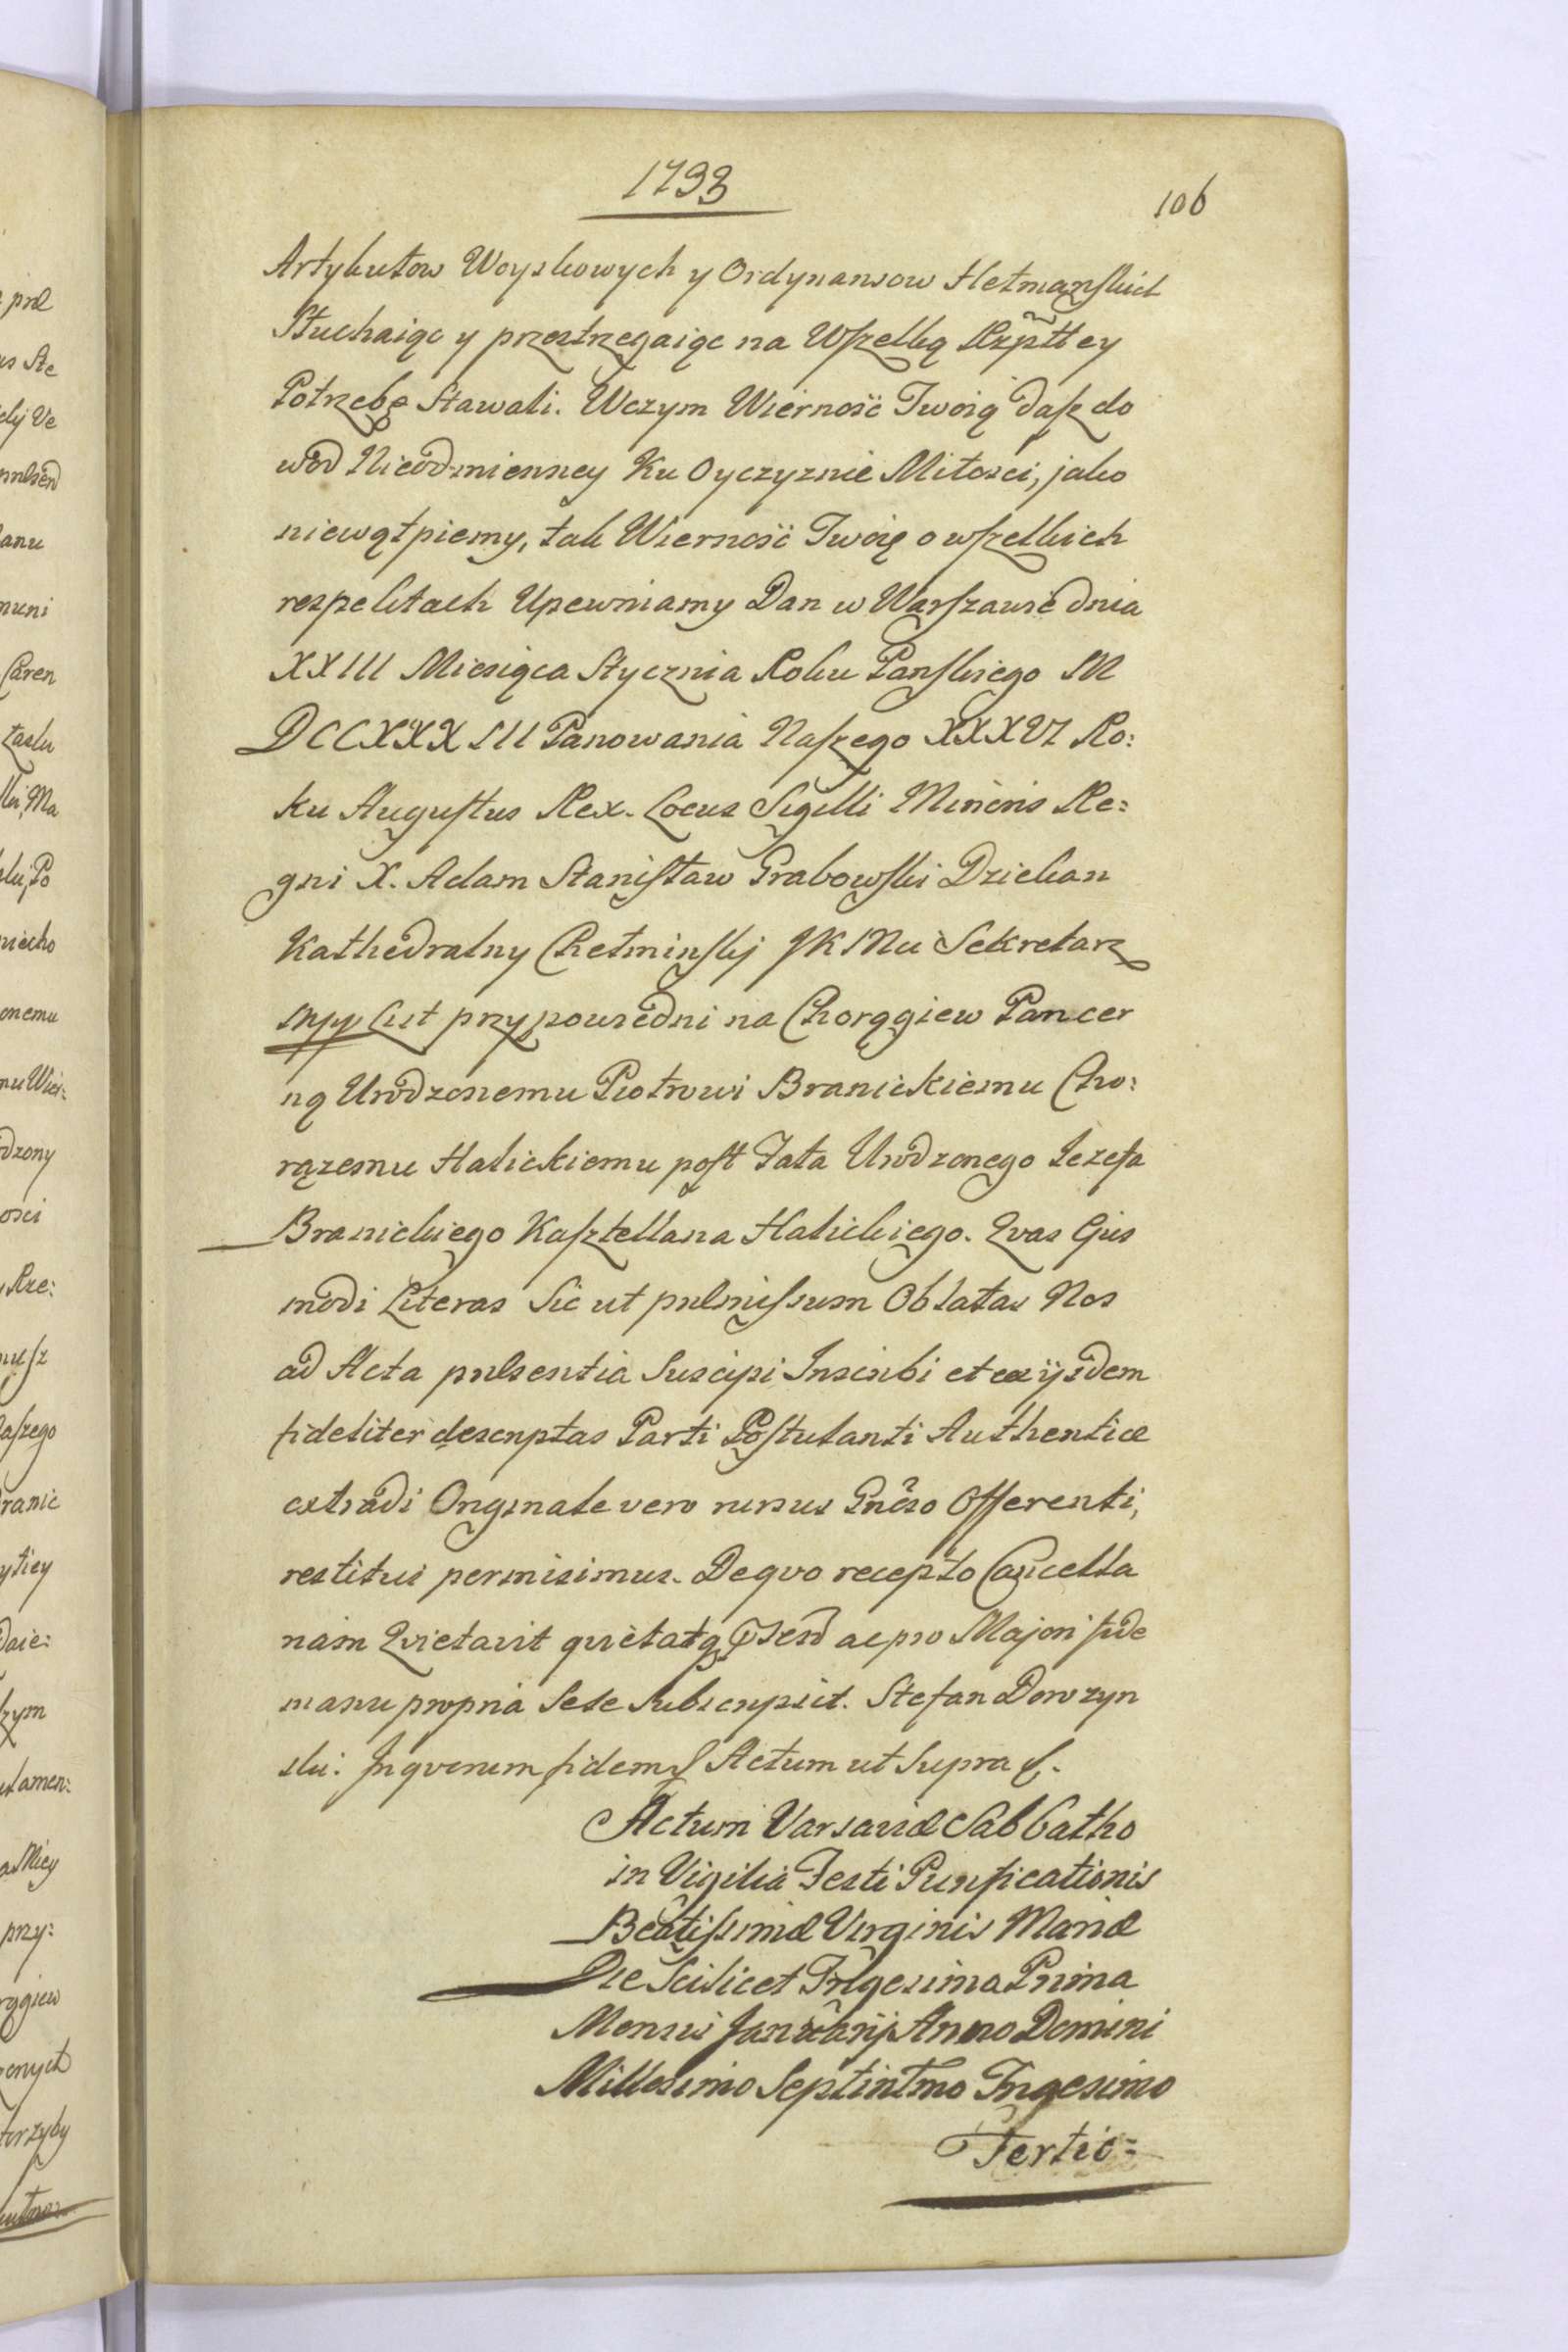 1733
106
Artykułow Woyskowych y Ordynansow Hetmanskich
Słuchaiąc y przestrzegaiąc na Wszelką Rzpttey
Potrzebę Stawali. Wczym Wiernosc Twoią dasz do
wod Nieodmienney Ku Oyczyznie Miłosci, jako
niewątpiemy, tak Wiernosc Twoię o wszelkich
respektach Upewniamy Dan w Warszawie dnia
XXIII Miesiąca Stycznia Roku Panskiego M
DCCXXXIII Panowania Naszego XXXVI Ro:
ku Augustus Rex. Locus Sigilli Minoris Re:
gni X. Adam Stanisław Grabowski Dziekan
Kathedralny Chełminskj JKMci Sekretarz
mpp List przypowiedni na Chorągiew Pancer
ną Urodzonemu Piotrowi Branickiemu Cho:
rązemu Halickiemu post Fata Urodzonego Iozefa
Branickiego Kasztellana Halickiego. Qvas Ejus
modi Literas Sic ut pnlmissum Oblatas Nos
ad Acta pnlsentia Suscipi Inscribi et ex ijsdem
fideliter descriptas Parti Postulanti Authentice
extradi Originale vero rursus Gnoso Offerenti,
restitui permisimus. De qvo recepto Cancella
riam Qvietavit qvietatq ac pro Majori fide
manu propria Sese Subscripsit. Stefan Dowzyn
ski. In qvorum fidem Actum ut Supra
Actum Varsaviæ Sabbatho
in Vigilia Festi Purificationis
Beatissimæ Virginis Mariæ
Die Scilicet Trigesima Prima
Mensis Januarij Anno Domini
Millesimo Septintmo Trigesimo
Tertio=